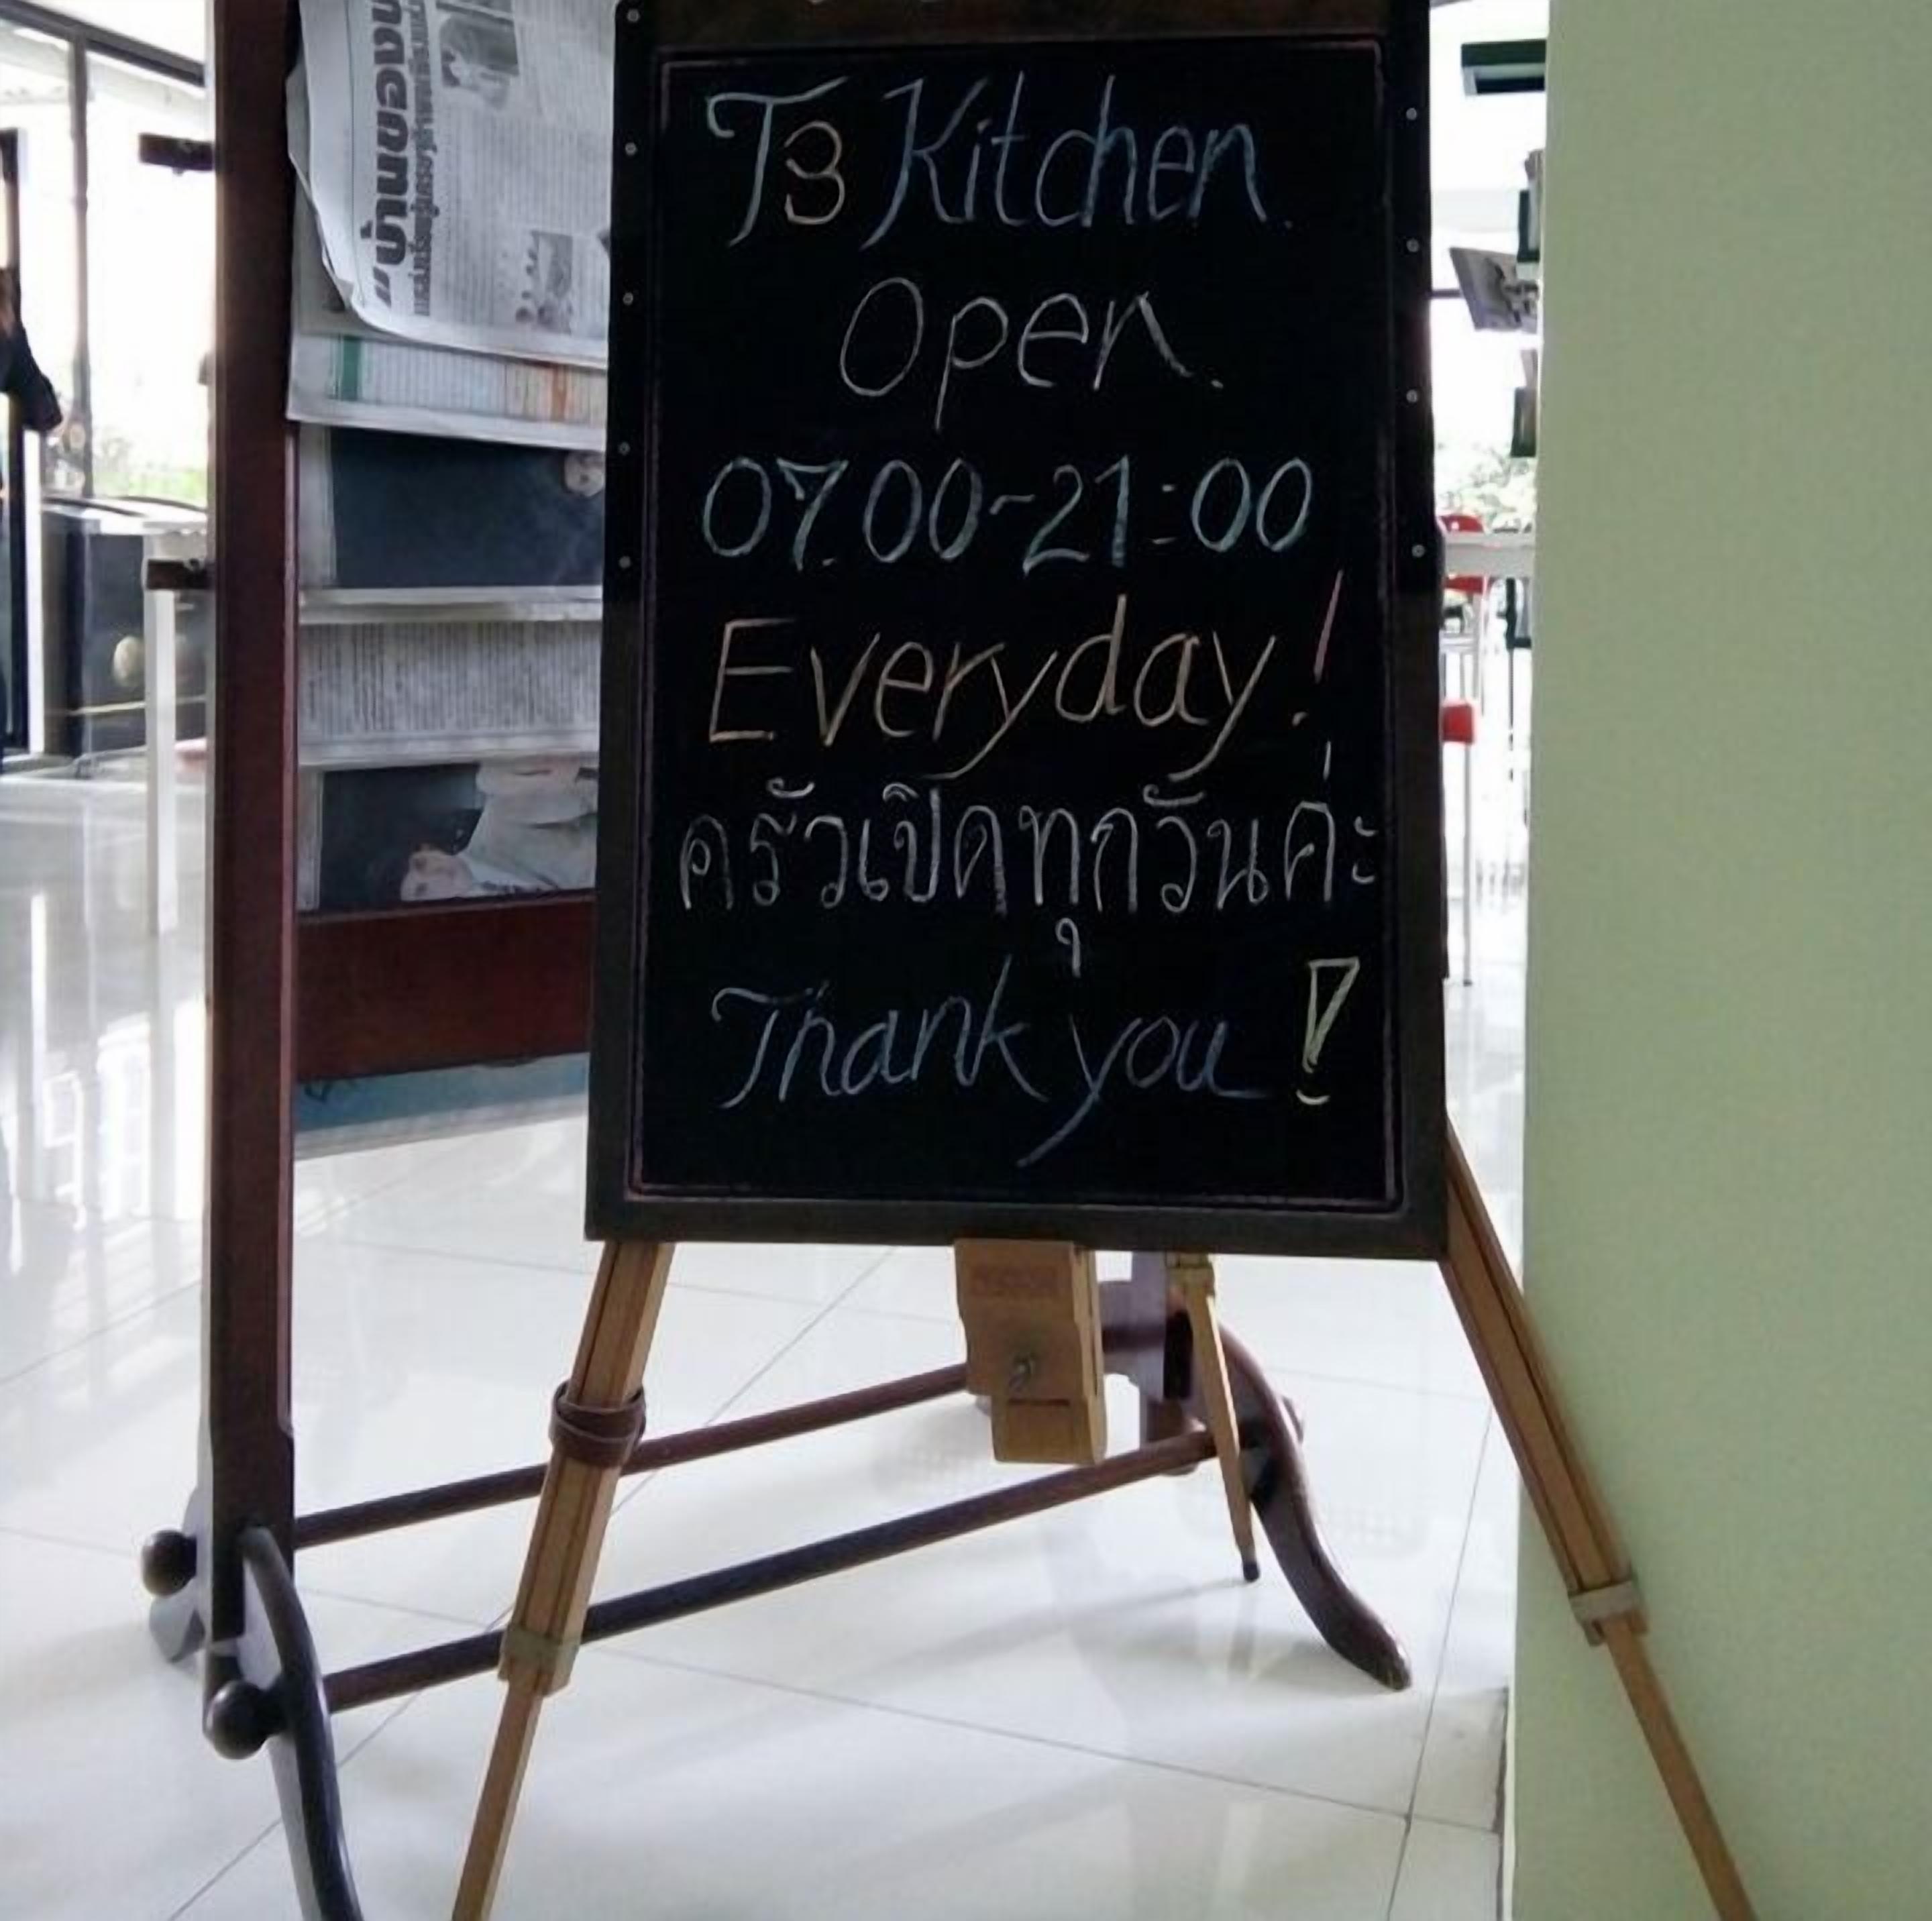 T3 Kitchen.
Open.
07.00-21:00
Everyday!
ครัวเปิดทุกวันค่ะ
Thank you!